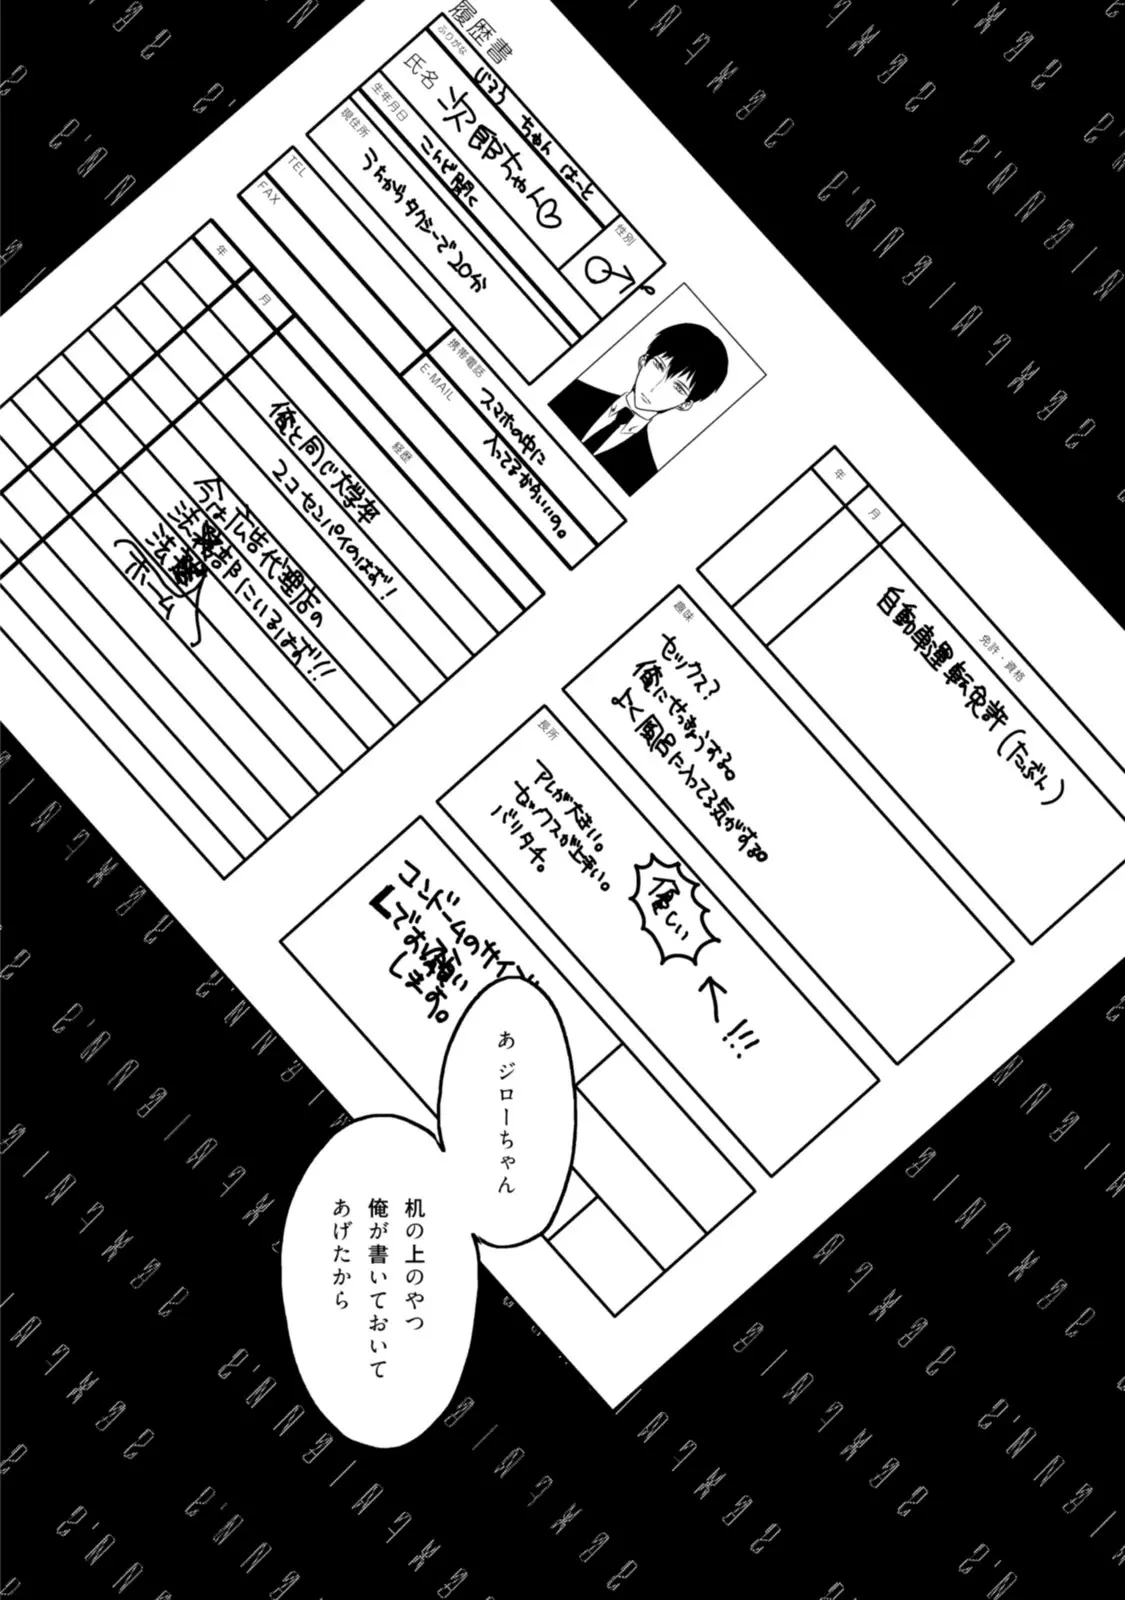 履歴書
ふりがな
じろう ちゃん はーと
氏名
次郎ちゃん♡
性別
♂
生年月日
こんど聞く
現住所
うちからタクシーで20分
TEL
FAX
携帯電話
スマホの中に
入ってるからいいの。
E-MAIL
年
月
経歴
俺と同じ大学卒
2コセンパイのはず!
今は広告代理店の
法務部にいるはず!!
法務
ホーム
年
月
免許・資格
自動車運転免許(たぶん)
趣味
セックス?
俺にせっきょうする。
犬風呂に入ってる気がする。
長所
アレが大きい。
セックスが上手い。
バリタチ。
優しい
↑!!!
コンドームのサイズ
Lでお願い
します。
あ ジローちゃん
机の上のやつ
俺が書いておいて
あげたから